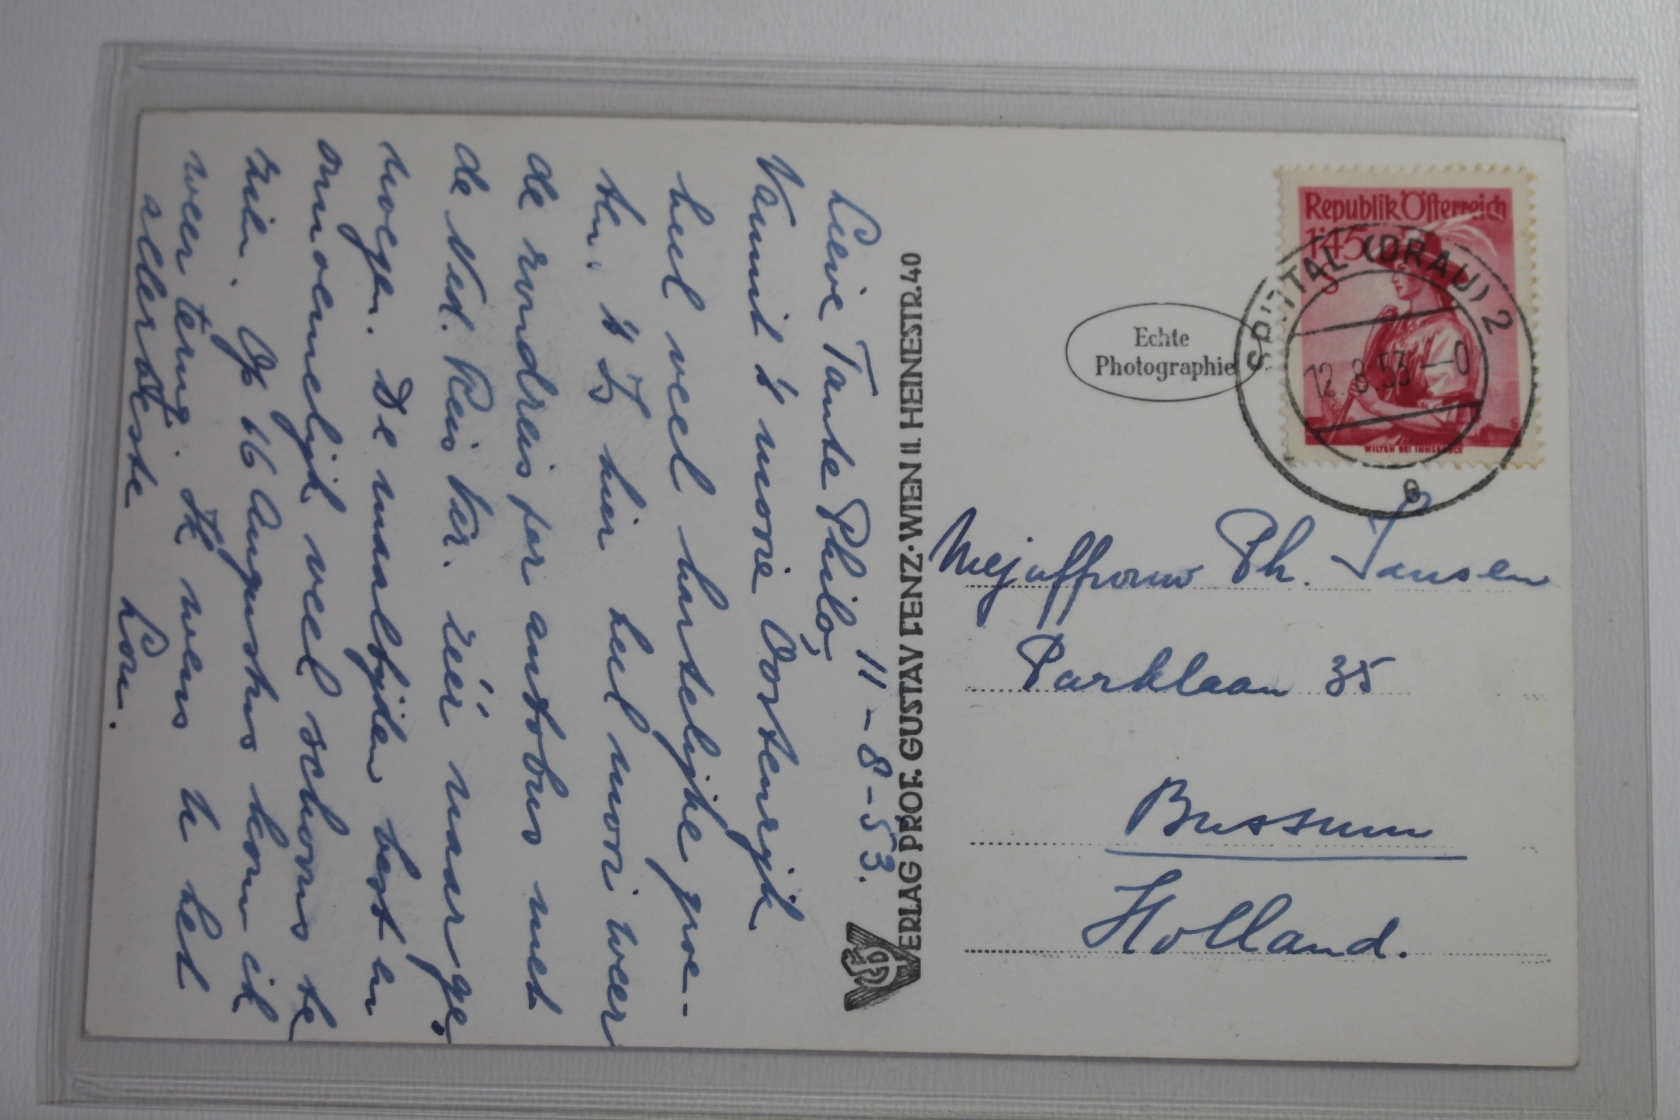 11-8-53.
Lieve Tante Philo,
Vanuit 't mooie Oostenrijk
heel veel hartelijke groe-
ten. 't Is hier heel mooi weer
de rondreis per autobus met
de Ned. Reis Ver. zéér naar ge-
noegen. De maaltijden best en
onnoemelijk veel schoons te
zien. Op 16 Augustus kom ik
weer terug. Ik wens U het
allerbeste Lon.
VERLAG PROF. GUSTAV FENZ·WIEN II. HEINESTR.40
Echte
Photographie
Republik Österreich
1'45
S
WILTEN BEI INNSBRUCK
SPITTAL (DRAU) 2
12.8.53
e
Mejuffrouw Ph. Jansen
Parklaan 35
Bussum
Holland.